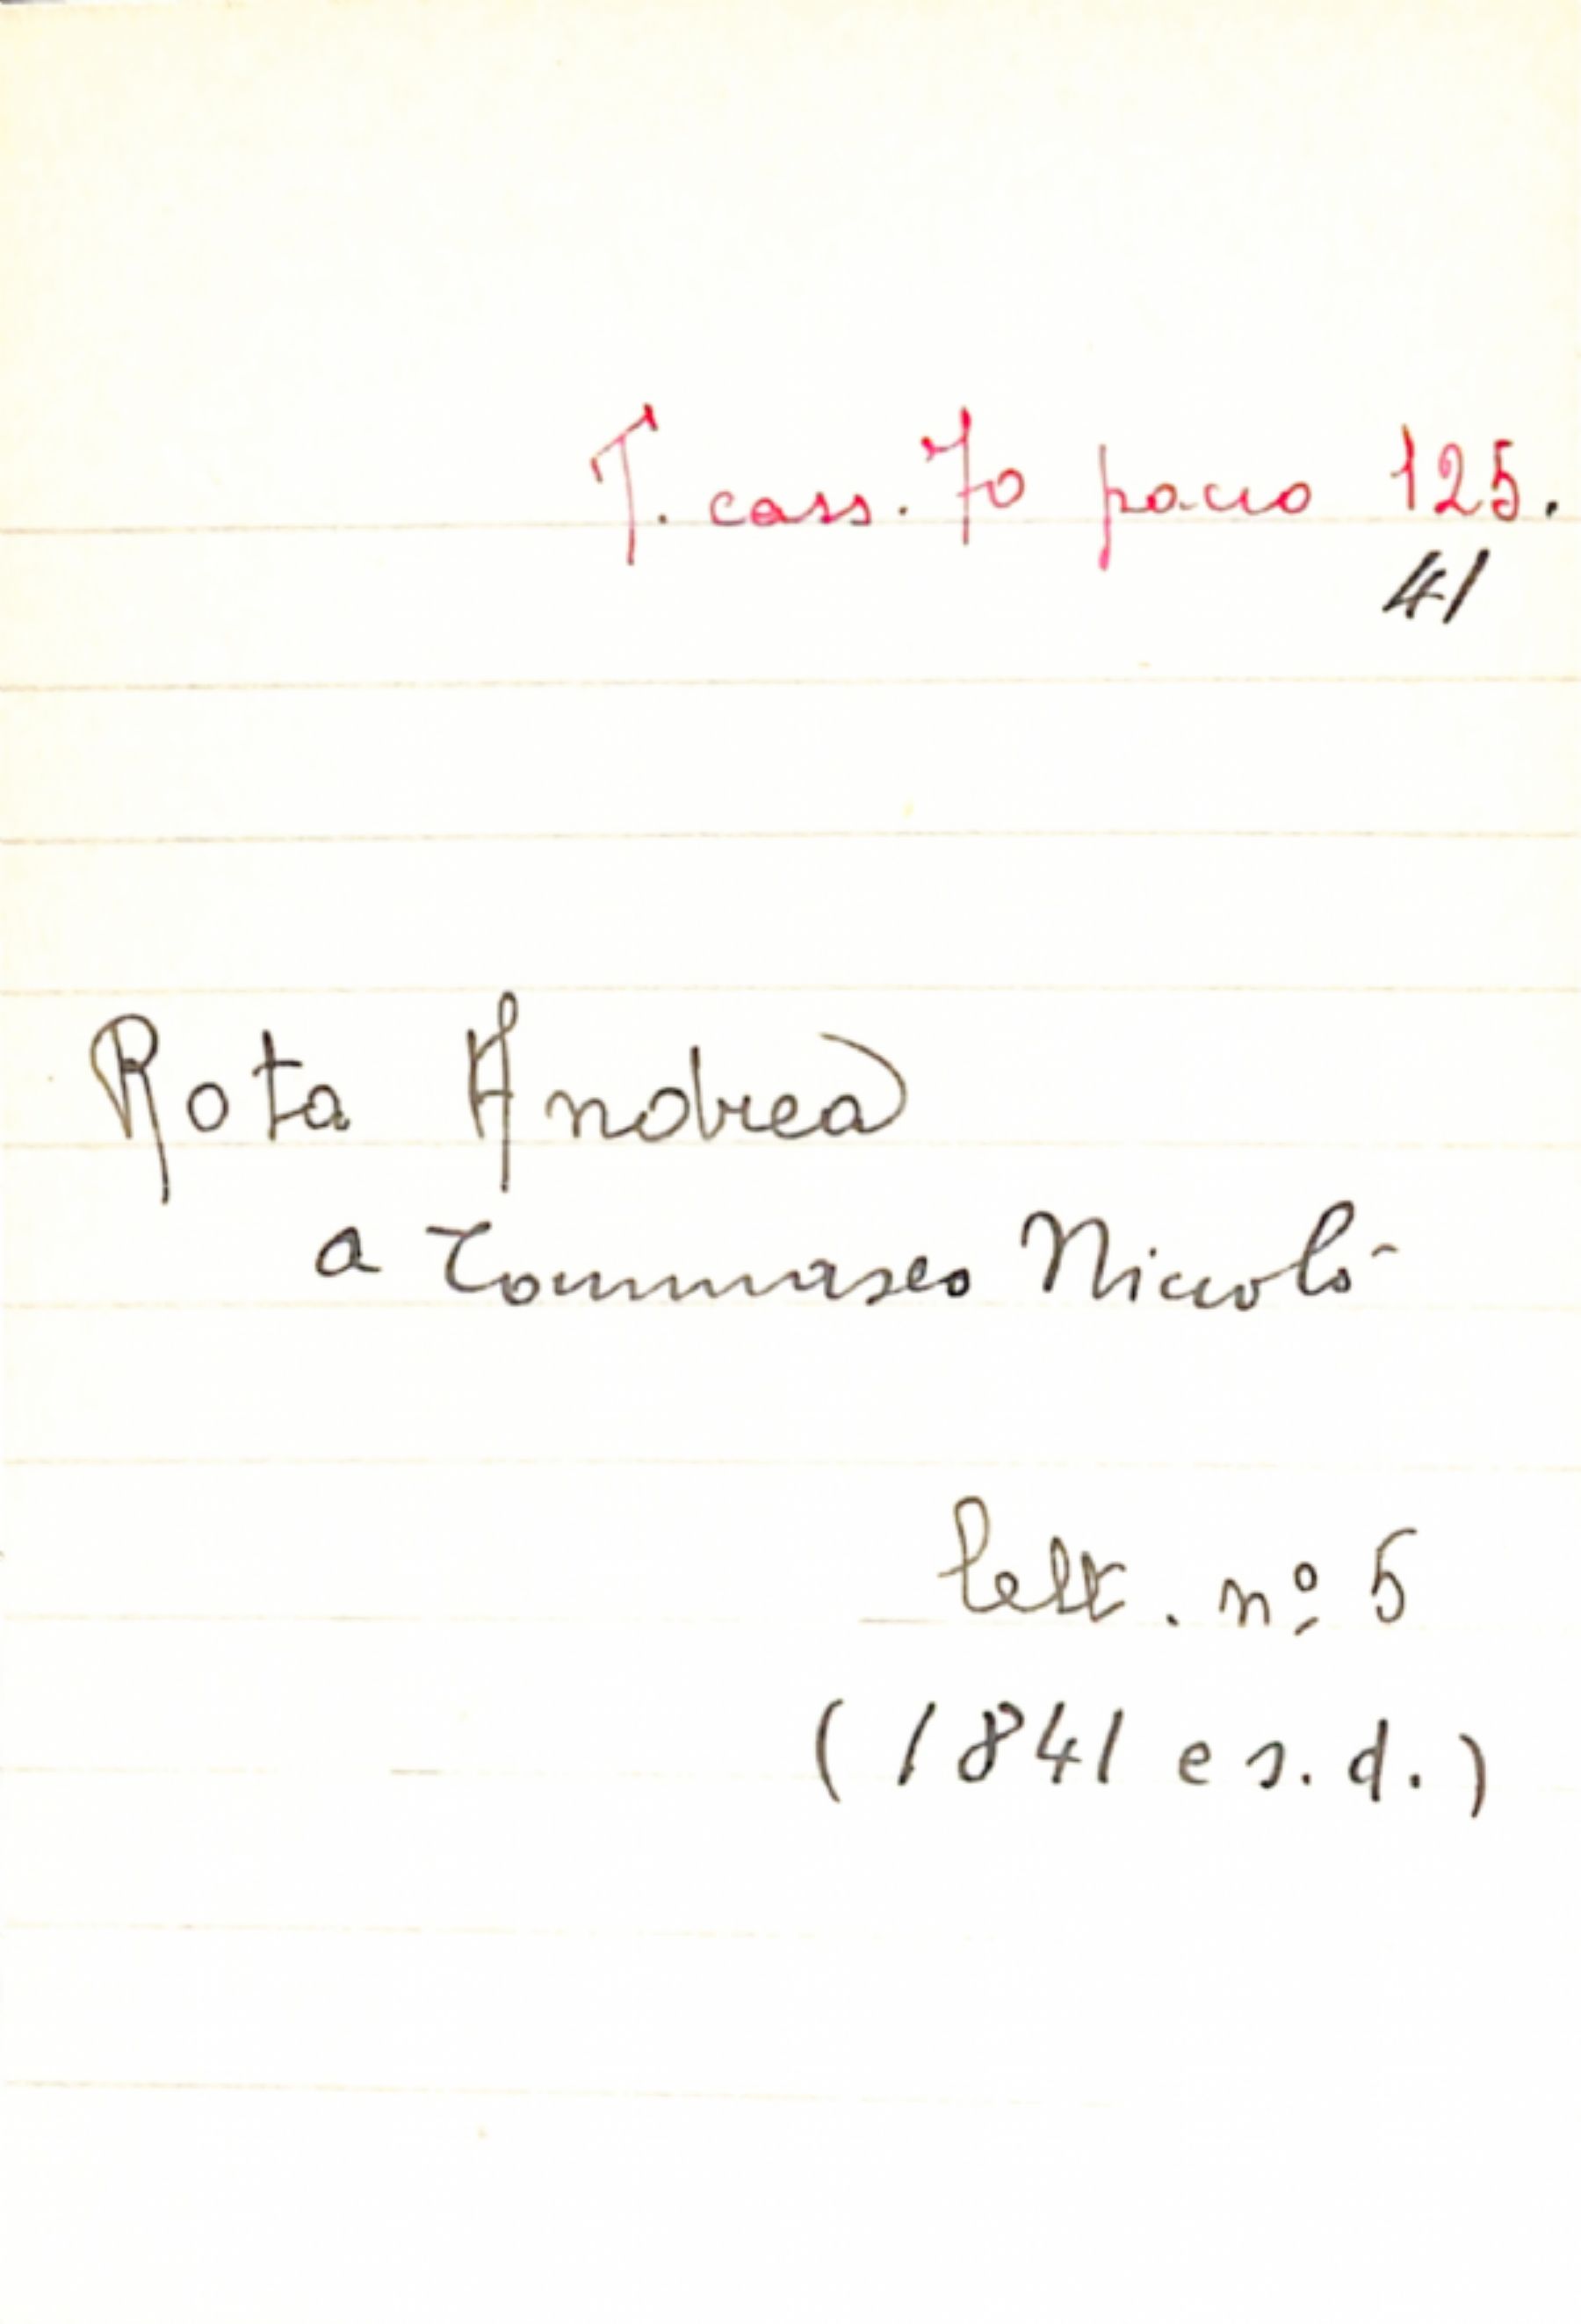 T. cass. 70 pacco 125.
41
Rota Andrea
a Tommaseo Niccolò
lett. nº 5
(1841 e s.d.)